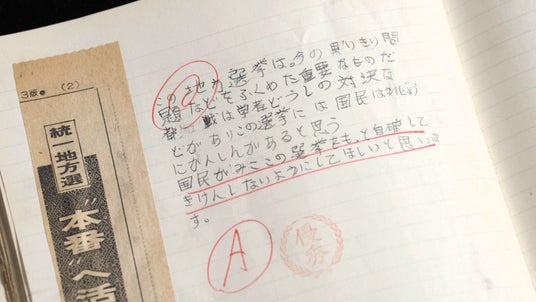 3版● (2)
統一地方選
“本番”へ活
この地方選挙は。今の 問
題などをふくめた重要なものだ
戦は学者どうしの対決な
どがありこの選挙には国民は
にかんしんがあると思う
国民がみこの選挙をもっと自確して
きけんしないようにしてほしいと思いま
す。
A
優秀